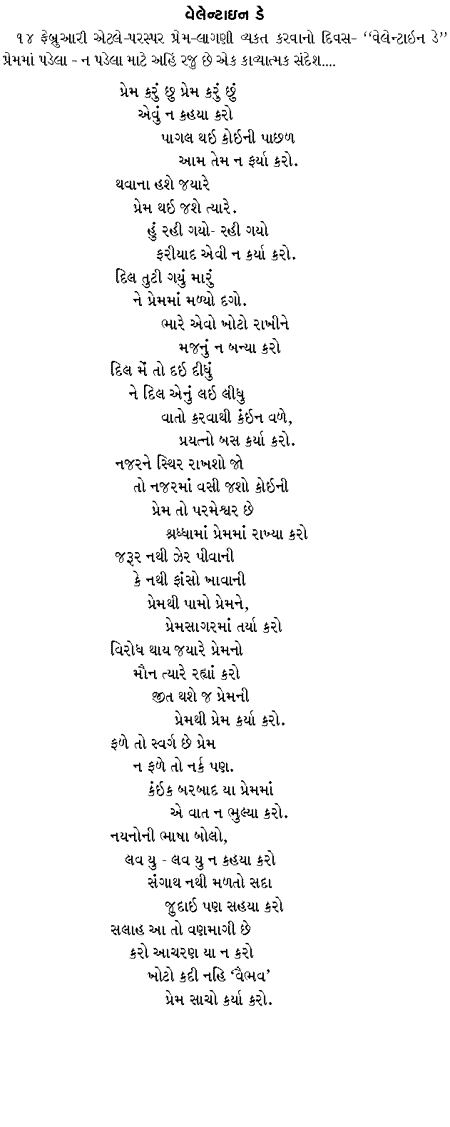 વેલેન્ટાઇન ડે
૧૪ ફેબ્રુઆરી એટલે-પરસ્પર પ્રેમ-લાગણી વ્યકત કરવાનો દિવસ- “વેલેન્ટાઇન ડે”
પ્રેમમાં પડેલા - ન પડેલા માટે અહિં રજુ છે એક કાવ્યાત્મક સંદેશ....
પ્રેમ કરું છુ પ્રેમ કરું છું
એવું ન કહયા કરો
પાગલ થઈ કોઈની પાછળ
આમ તેમ ન ફર્યા કરો.
થવાના હશે જયારે
પ્રેમ થઈ જશે ત્યારે.
હું રહી ગયો- રહી ગયો
ફરીયાદ એવી ન કર્યા કરો.
દિલ તુટી ગયું મારું
ને પ્રેમમાં મળ્યો દગો.
ભારે એવો ખોટો રાખીને
મજનું ન બન્યા કરો
દિલ મેં તો દઈ દીધું
ને દિલ એનું લઈ લીધુ
વાતો કરવાથી કંઈન વળે,
પ્રયત્નો બસ કર્યા કરો.
નજરને સ્થિર રાખશો જો
તો નજરમાં વસી જશો કોઈની
પ્રેમ તો પરમેશ્વર છે
શ્રધ્ધામાં પ્રેમમાં રાખ્યા કરો
જરૂર નથી ઝેર પીવાની
કે નથી ફાંસો ખાવાની
પ્રેમથી પામો પ્રેમને,
પ્રેમસાગરમાં તર્યા કરો
વિરોધ થાય જયારે પ્રેમનો
મૌન ત્યારે રહ્યાં કરો
જીત થશે જ પ્રેમની
પ્રેમથી પ્રેમ કર્યા કરો.
ફળે તો સ્વર્ગ છે પ્રેમ
ન ફળે તો નર્ક પણ.
કંઈક બરબાદ યા પ્રેમમાં
એ વાત ન ભુલ્યા કરો.
નયનોની ભાષા બોલો,
લવ યુ - લવ યુ ન કહયા કરો
સંગાથ નથી મળતો સદા
જુદાઈ પણ સહયા કરો
સલાહ આ તો વણમાગી છે
કરો આચરણ યા ન કરો
ખોટો કદી નહિ ‘વૈભવ’
પ્રેમ સાચો કર્યા કરો.